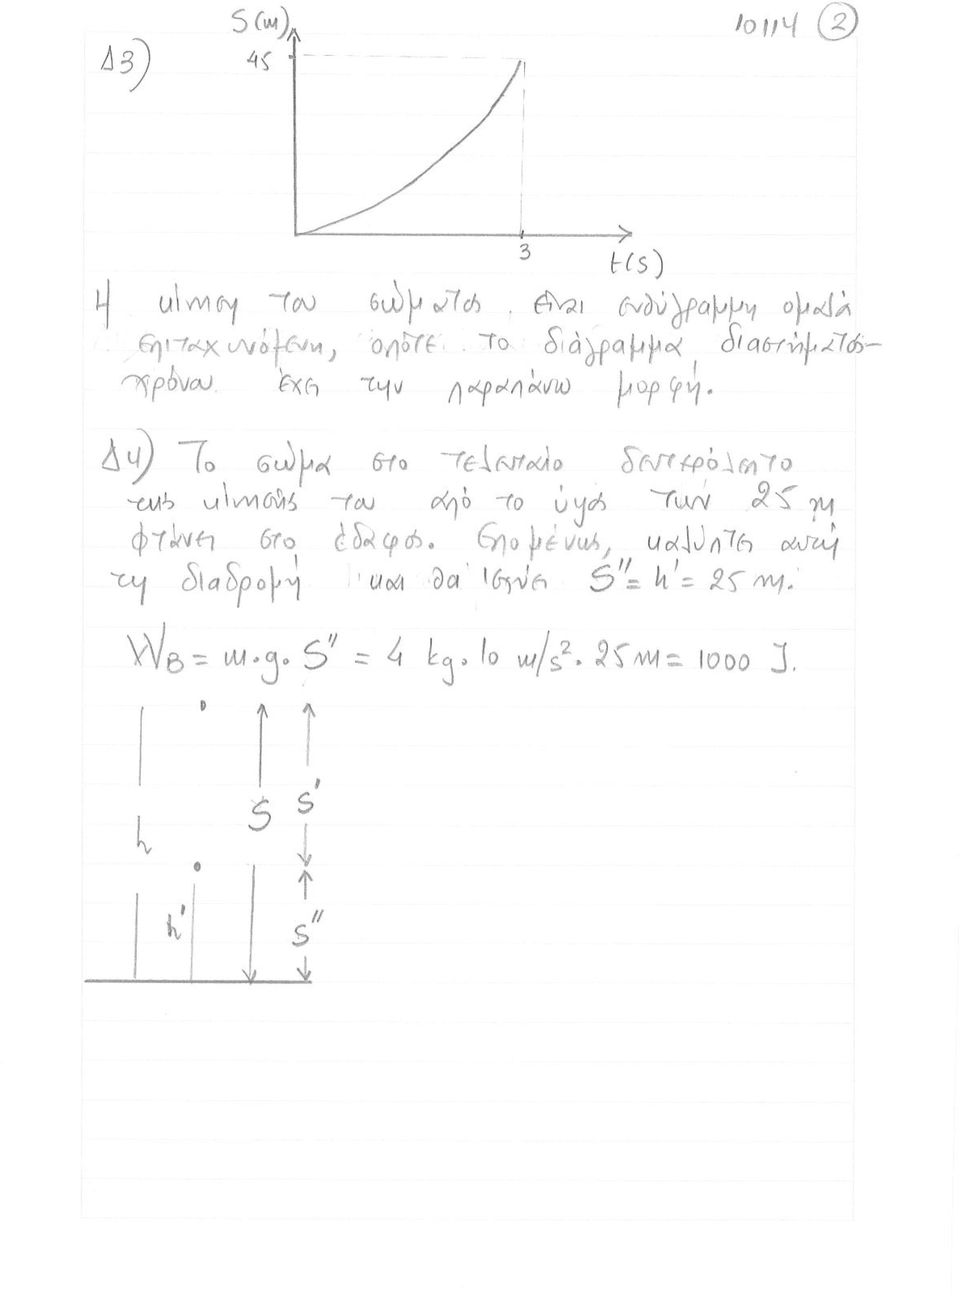 10114 2
Δ3)
S(m)
45
3
t(s)
Η κίνηση του σώματος είναι ευθύγραμμη ομαλά
επιταχυνόμενη, οπότε το διάγραμμα διαστήματος-
χρόνου έχει την παραπάνω μορφή.
Δ4) Το σώμα στο τελευταίο δευτερόλεπτο
της κίνησής του από το ύψος των 25 m
φτάνει στο έδαφος. Επομένως, καλύπτει αυτή
τη διαδρομή και θα ισχύει S'' = h' = 25 m.
W_B = m·g·S'' = 4 kg·10 m/s²·25 m = 1000 J.
h
S
S'
h'
S''